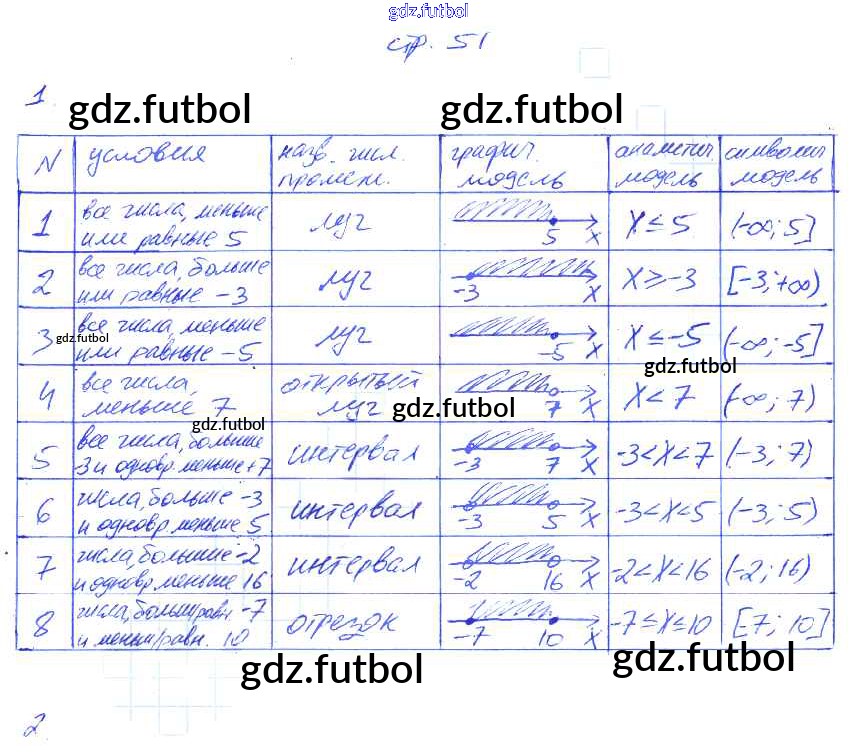 gdz.futbol
стр. 51
1.
gdz.futbol gdz.futbol
N условия назв. числ. промеж. графич. модель аналитич. модель символич модель
1 все числа, меньше или равные 5 луч 5 x x ≤ 5 (-∞; 5]
2 все числа, больше или равные -3 луч -3 x x ≥ -3 [-3; +∞)
3 все числа, меньше или равные -5 луч -5 x x ≤ -5 (-∞; -5]
gdz.futbol
gdz.futbol
4 все числа, меньше 7 открытый луч 7 x x < 7 (-∞; 7)
gdz.futbol
gdz.futbol
5 все числа, больше -3 и одновр. меньше +7 интервал -3 7 x -3 < x < 7 (-3; 7)
6 числа, больше -3 и одновр меньше 5 интервал -3 5 x -3 < x < 5 (-3; 5)
7 числа, больше -2 и одновр меньше 16 интервал -2 16 x -2 < x < 16 (-2; 16)
8 числа, больш/равн -7 и меньш/равн. 10 отрезок -7 10 x -7 ≤ x ≤ 10 [7; 10]
gdz.futbol gdz.futbol
2